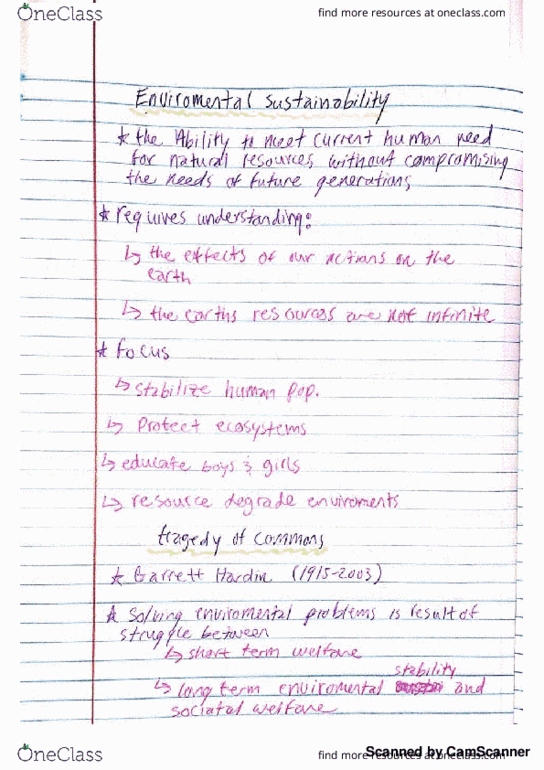 OneClass
find more resources at oneclass.com
Enviromental Sustainability
* the Ability to meet current human need
for natural resources, without compromising
the needs of future generations
* requires understanding:
↳ the effects of our actions on the
earth
↳ the earths resources are not infinite
* focus
↳ stabilize human pop.
↳ Protect ecosystems
↳ educate boys & girls
↳ resource degrade enviroments
tragedy of commons
* Garrett Hardin (1915-2003)
* Solving enviromental problems is result of
struggle between
↳ short term welfare
stability
↳ long term enviromental and
sociatal welfare
OneClass
find more resources at oneclass.com
Scanned by CamScanner